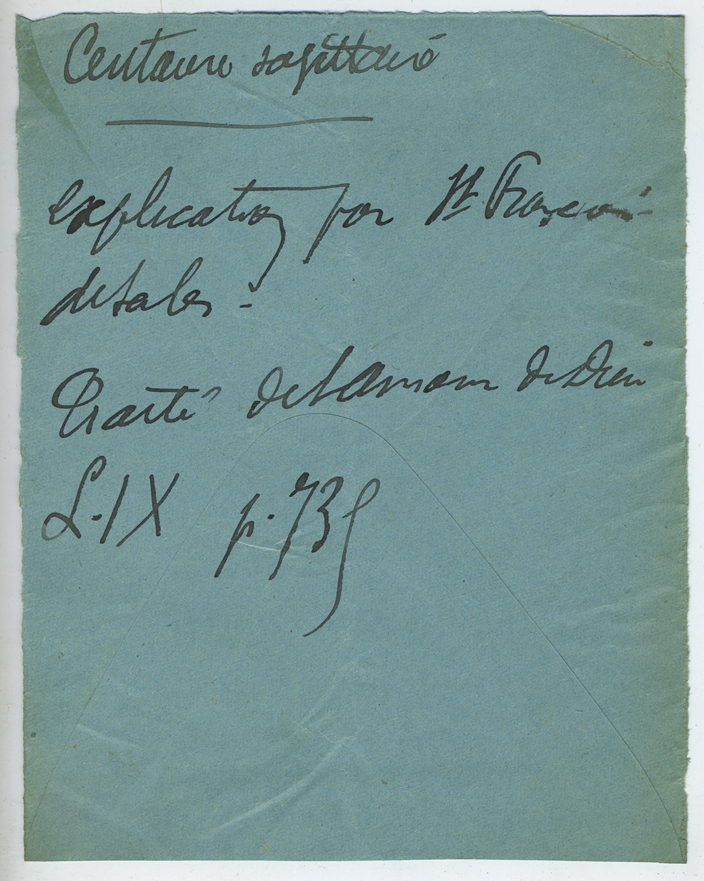 Centaure sagittaire
explication par St François
de Sales -
Traité de l'Amour de Dieu
L. IX p. 739